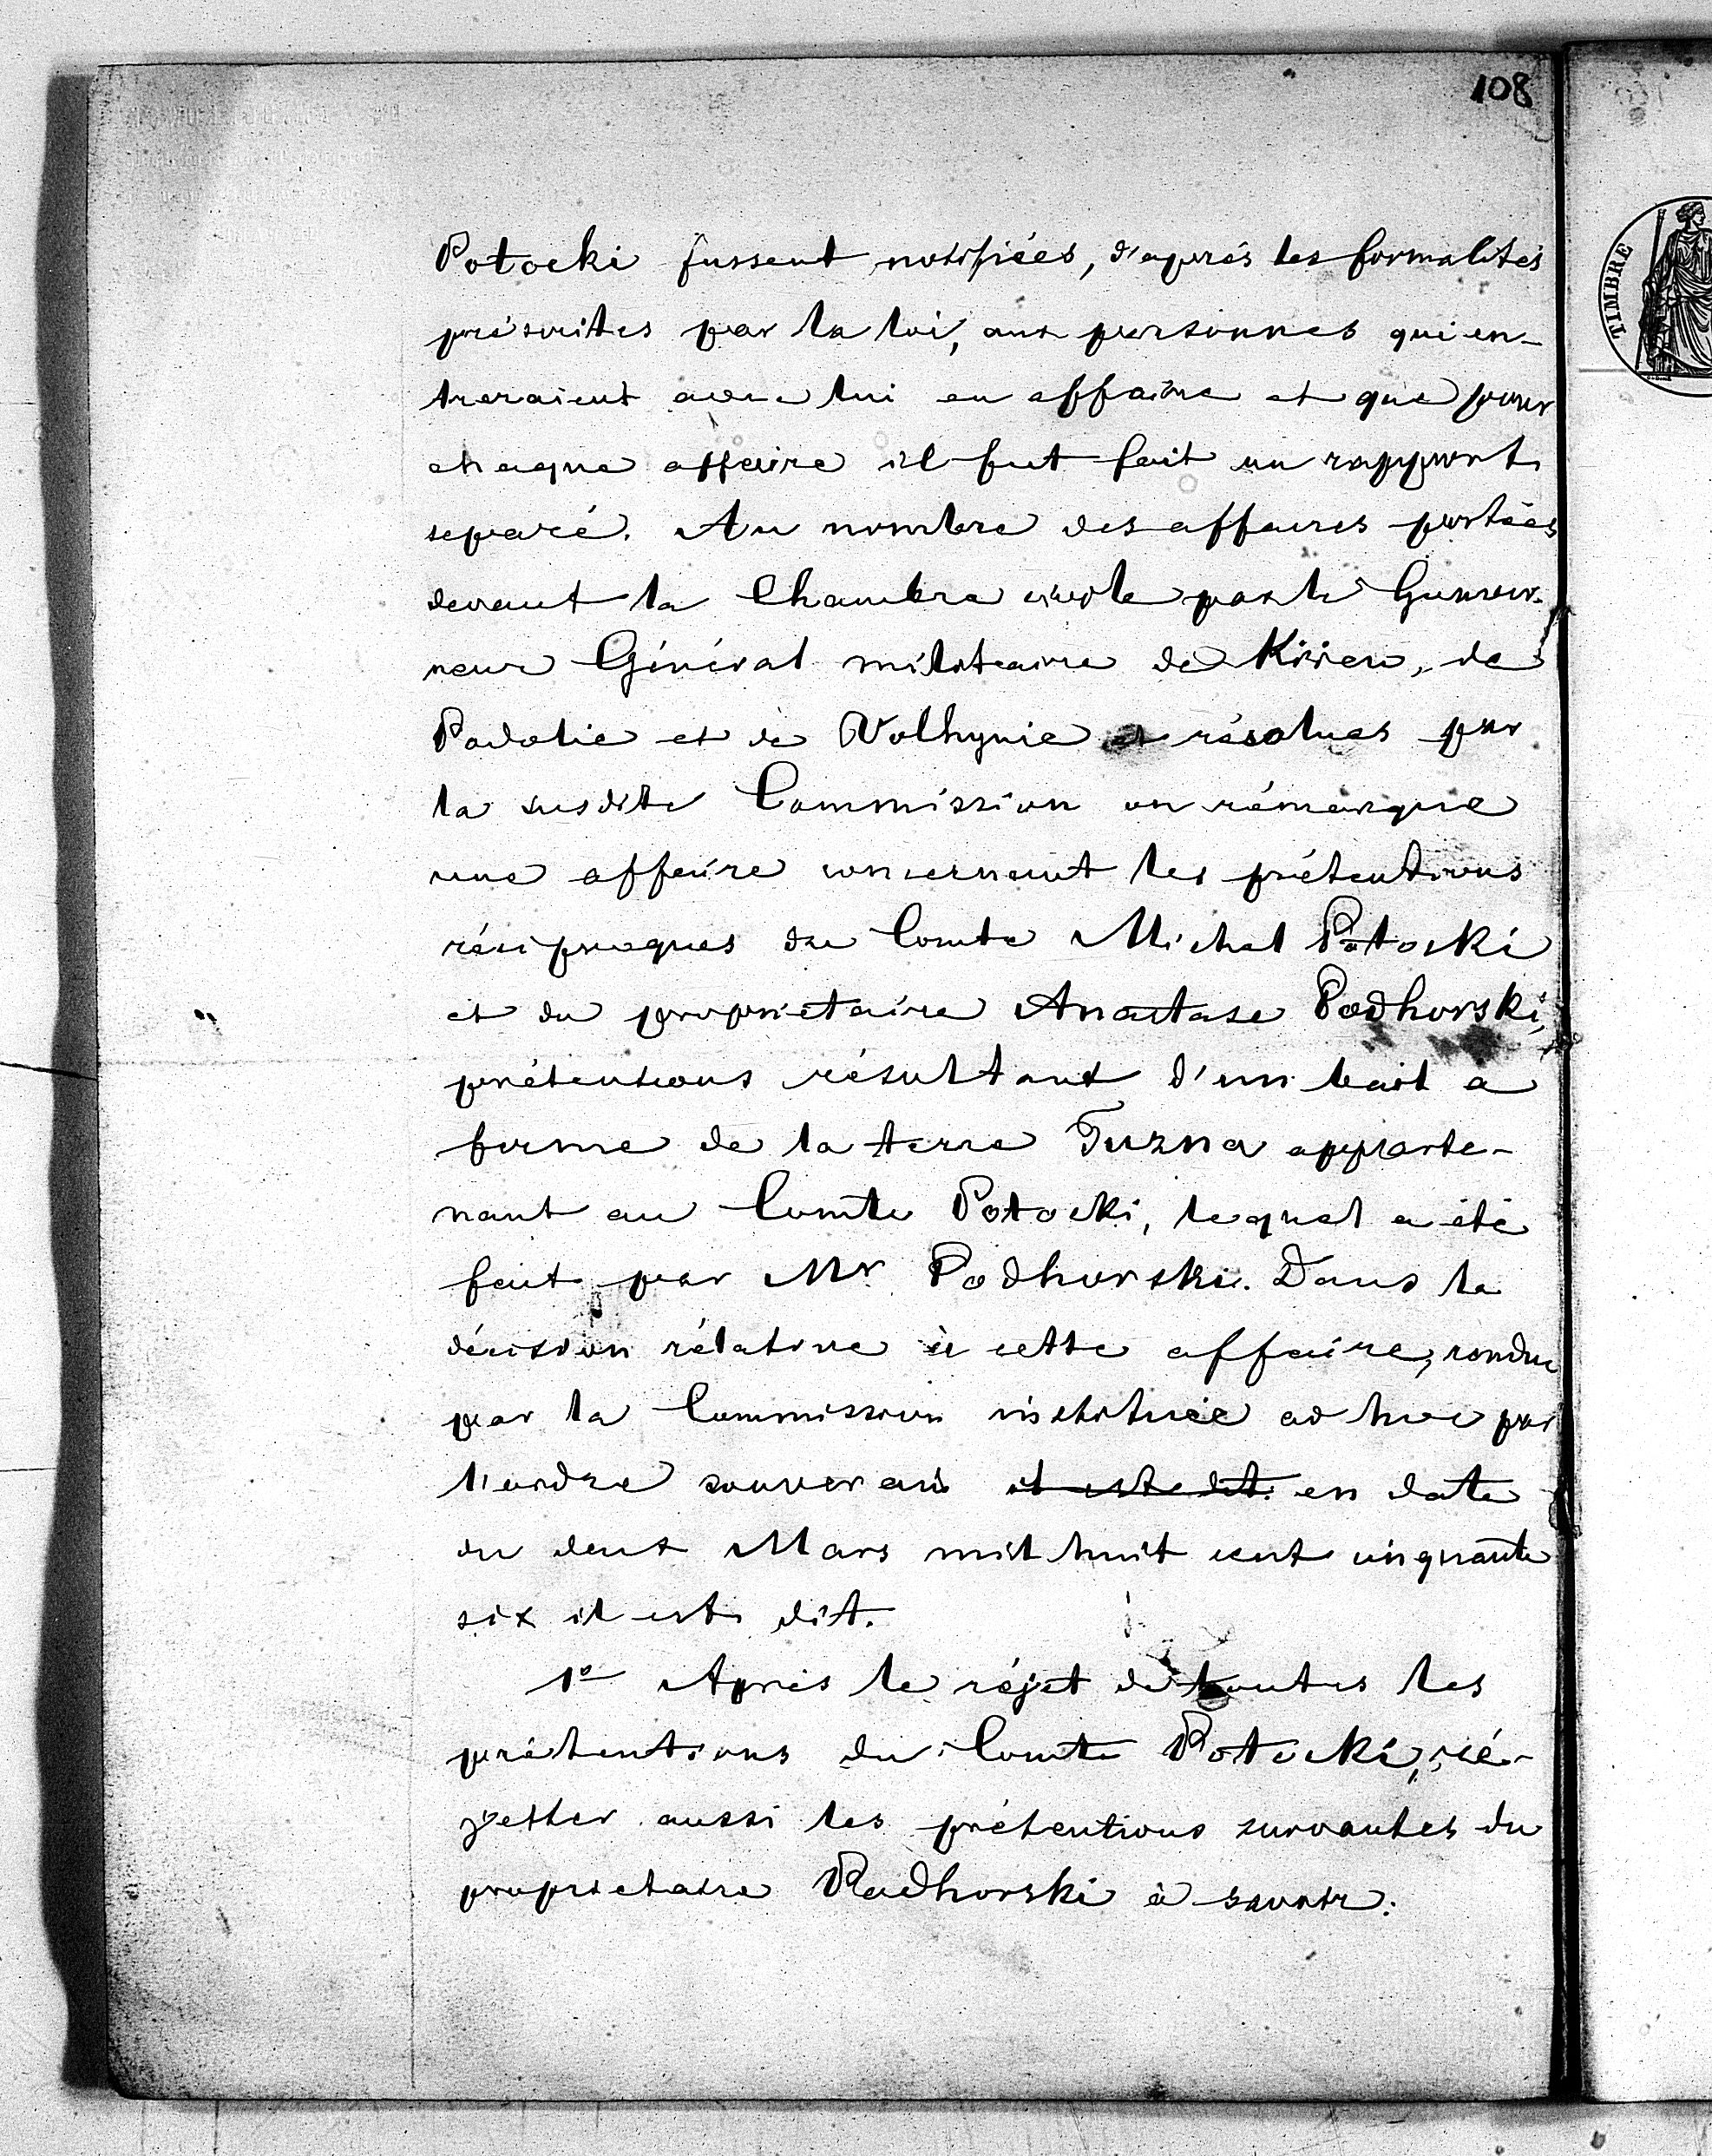 108
Potocki fussent notifiées, d'après les formalités
préscrites par la loi, aux personnes qui en-
treraient avec lui en affaire et que pour
chaque affaire il fut fait un rapport
separé. Au nombre des affaires portées
devant la Chambre civile par le Gouver-
neur Général militaire de Kiiew, de
Podolie et de Volhynie et résolues par
la susdite Commission on rémarque
une affaire concernant les prétentions
réciproques du Comte Michel Potocki
et du propriétaire Anastase Podhorski,
prétentions résultant d'un bail a
ferme de la terre Tuzna apparte-
nant au Comte Potocki, lequel a été
fait par Mr Podhorski. Dans la
décision rélative à cette affaire, rendue
par la Commission instituée ad hoc par
l'ordre souverain il est dit. en date
du deux Mars mil huit cent cinquante
six il est dit.
1º Après le réjet de toutes les
prétentions du Comte Potocki, ré-
jetter aussi les prétentions suivantes du
propriétaire Podhorski à savoir:
TIMBRE